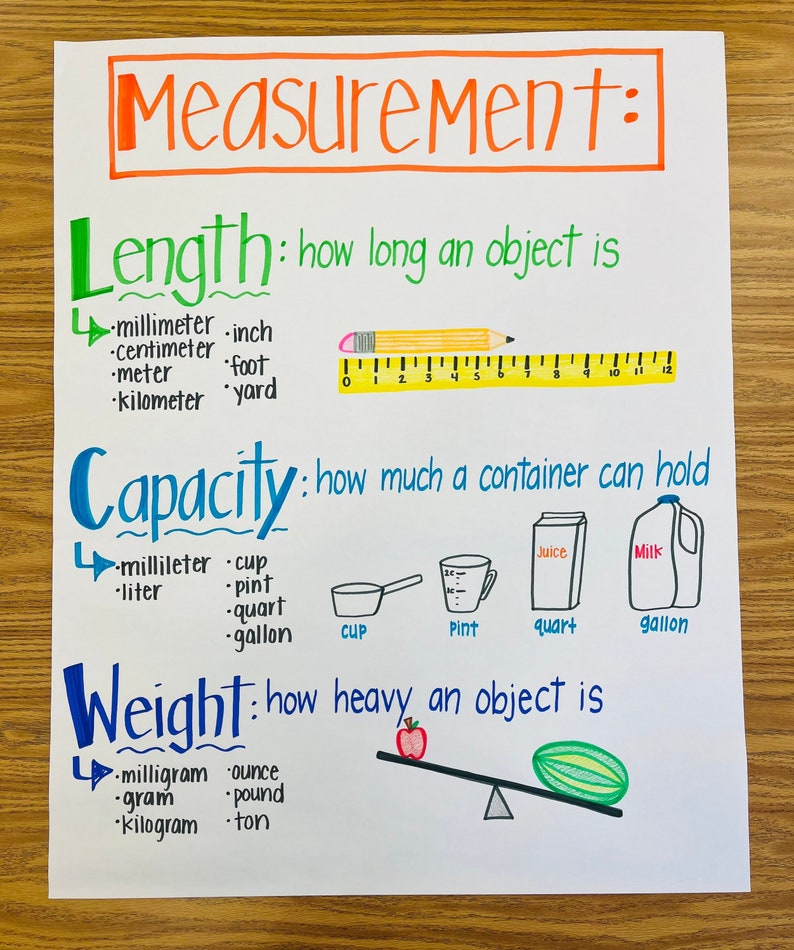 Measurement:
Length: how long an object is
• millimeter
• centimeter
• meter
• kilometer
• inch
• foot
• yard
0 1 2 3 4 5 6 7 8 9 10 11 12
Capacity: how much a container can hold
• millileter
• liter
• cup
• pint
• quart
• gallon
2c
1c
Juice
Milk
cup
pint
quart
gallon
Weight: how heavy an object is
• milligram
• gram
• kilogram
• ounce
• pound
• ton